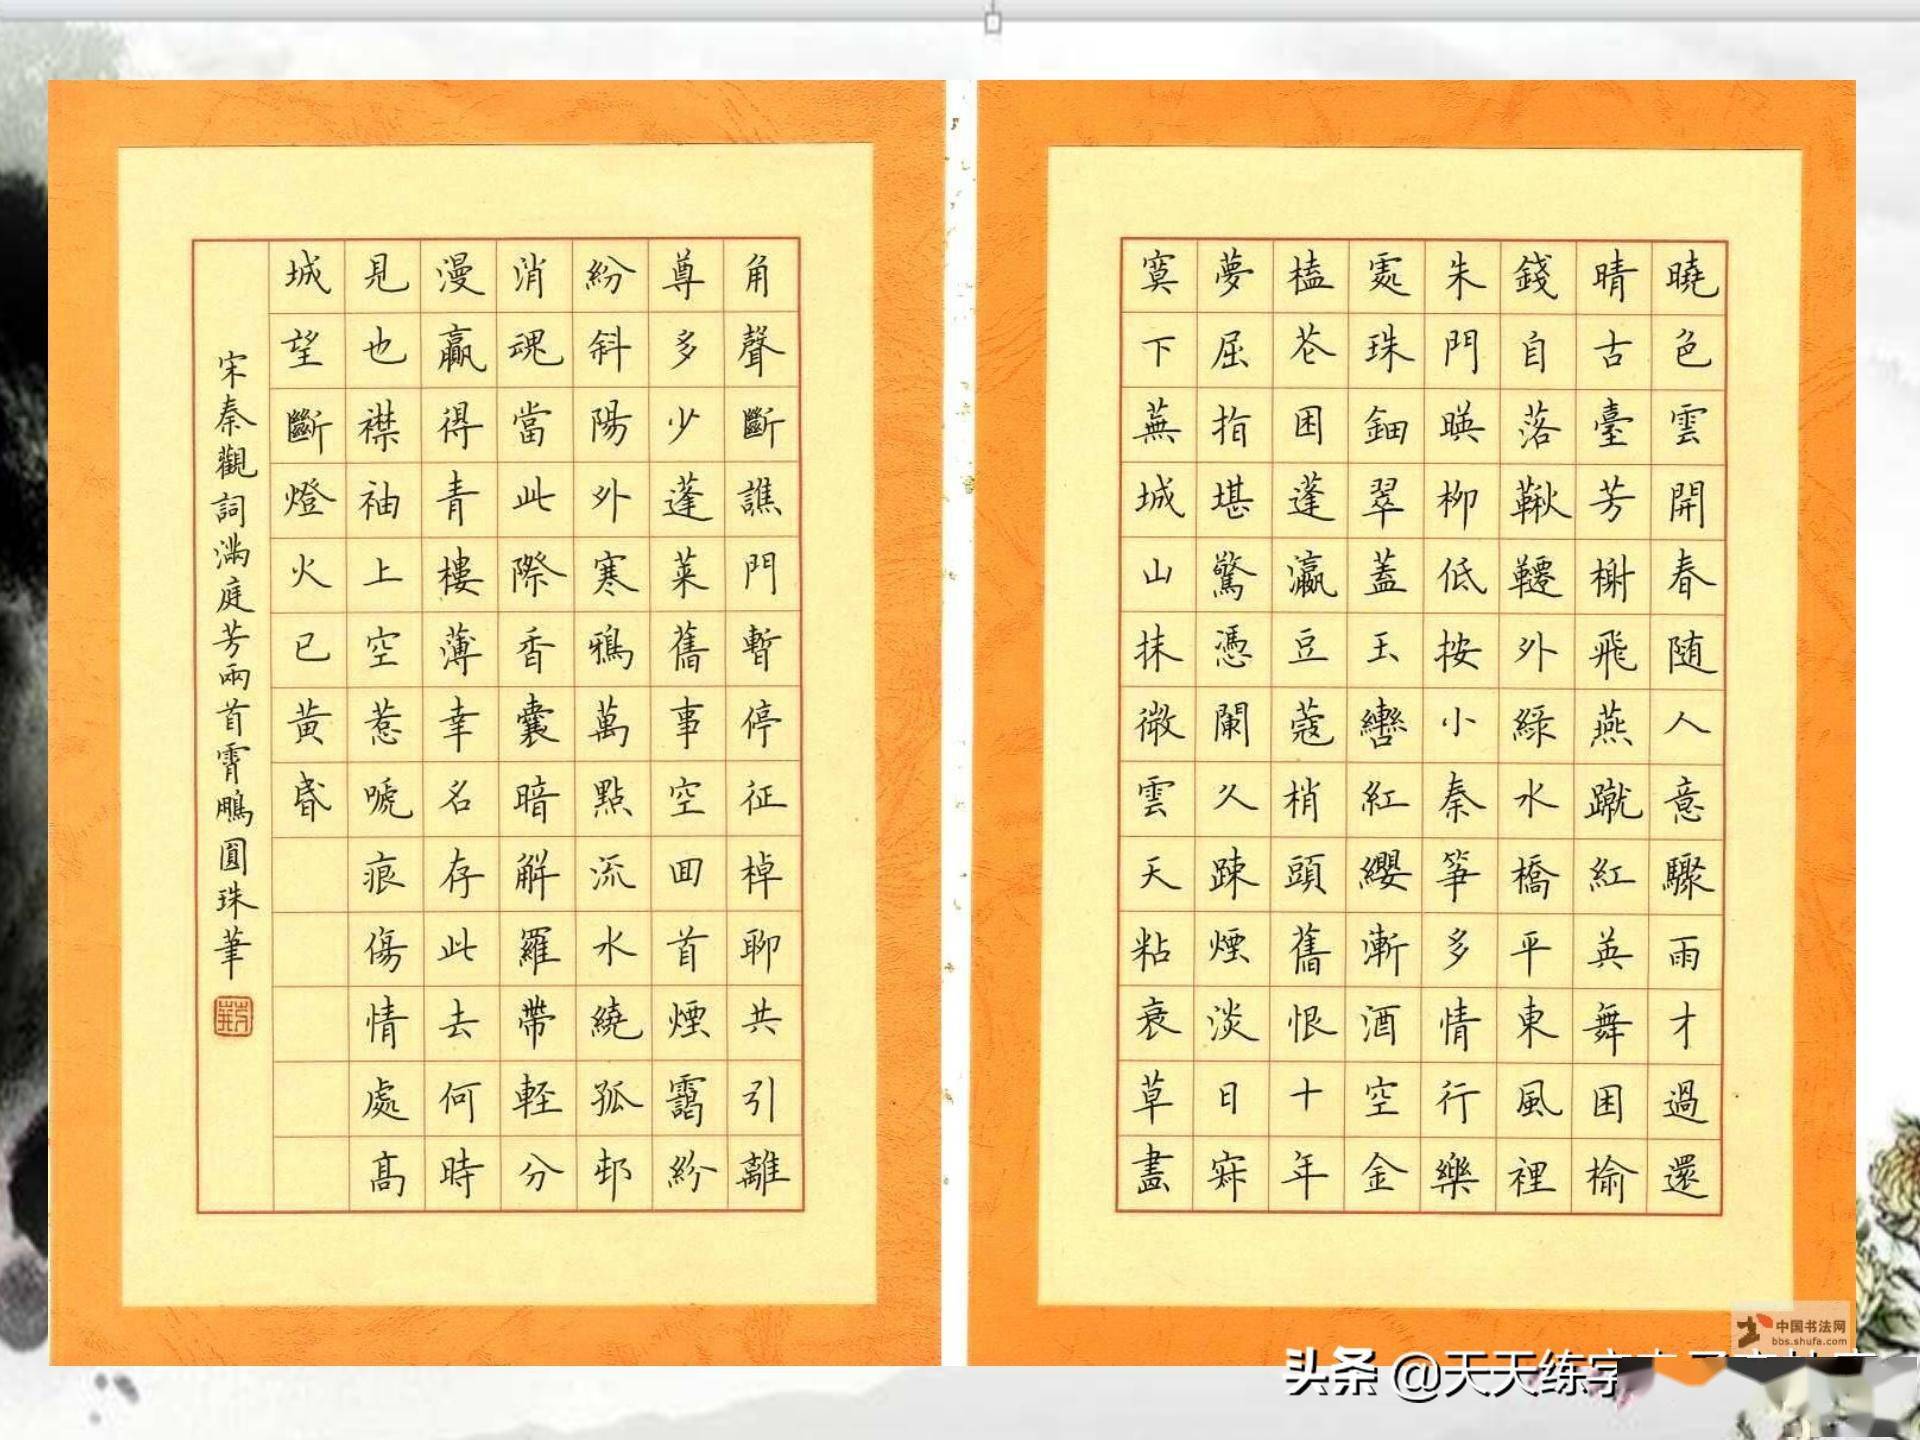 曉色雲開春随人意驟雨才過還
晴古臺芳榭飛燕蹴紅英舞困榆
錢自落鞦韆外緑水橋平東風裡
朱門暎柳低按小秦筝多情行樂
處珠鈿翠蓋玉轡紅纓漸酒空金
榼花困蓬瀛豆蔻梢頭舊恨十年
夢屈指堪驚憑闌久踈煙淡日寂
寞下蕪城山抹微雲天粘衰草畫
角聲斷譙門暫停征棹聊共引離
尊多少蓬萊舊事空回首煙靄紛
紛斜陽外寒鴉萬點流水繞孤邨
消魂當此際香囊暗解羅帶軽分
漫贏得青樓薄幸名存此去何時
見也襟袖上空惹嗁痕傷情處高
城望斷燈火已黄昏
宋秦觀詞滿庭芳兩首霄鵬圓珠筆
中国书法网
bbs.shufa.com
头条 @天天练字